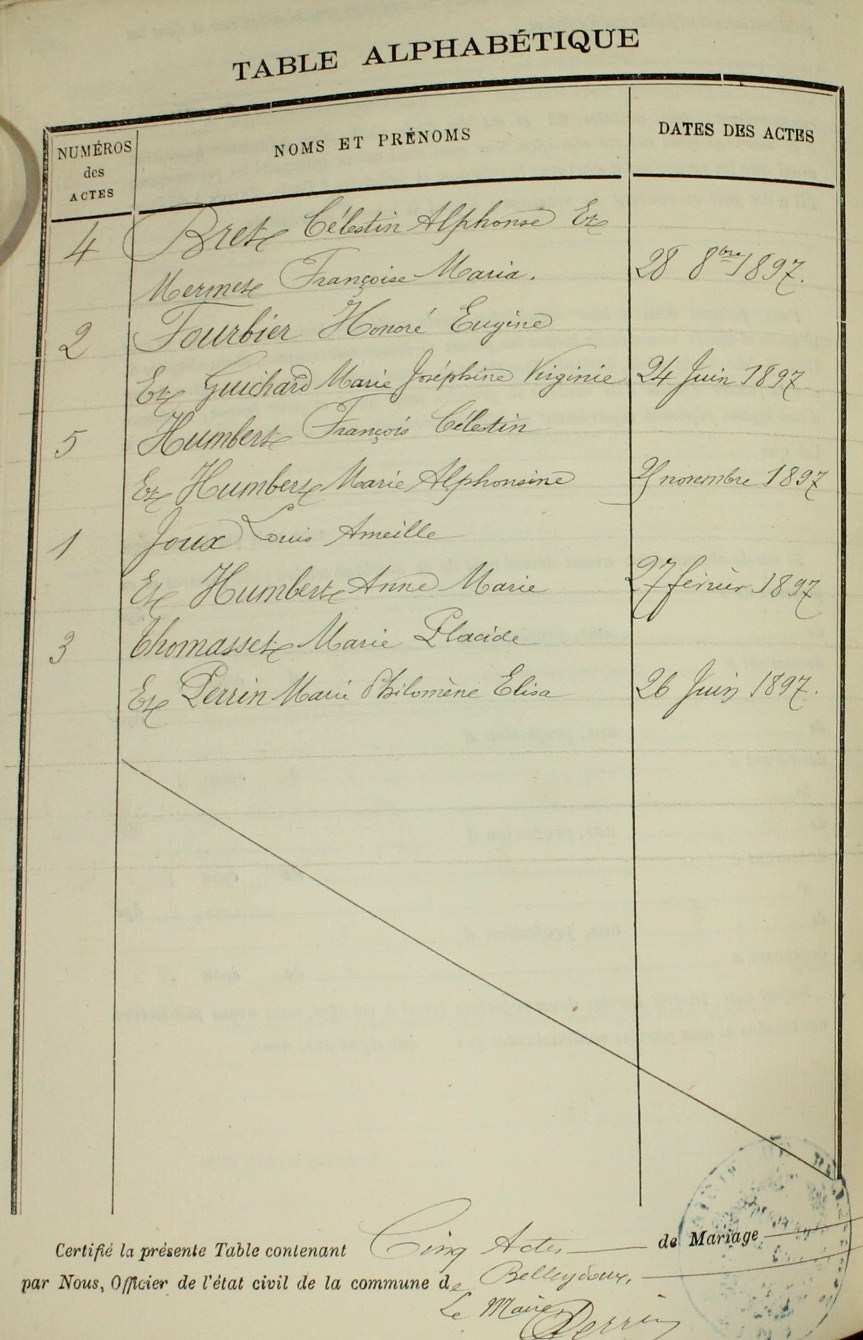 TABLE ALPHABÉTIQUE
NUMÉROS des ACTES
NOMS ET PRÉNOMS
DATES DES ACTES
4 Bret Célestin Alphonse Et
Mermet Françoise Maria. 28 8bre 1897.
2 Fourbier Honoré Eugène
Et Guichard Marie Joséphine Virginie 24 Juin 1897
5 Humbert François Célestin
Et Humbert Marie Alphonsine novembre 1897
1 Joux Louis Ameille
Et Humbert Anne Marie 27 février 1897
3 Thomasset Marie Placide
Et Perrin Marie Philomène Elisa 26 Juin 1897.
Certifié la présente Table contenant Cinq Actes de Mariage
par Nous, Officier de l'état civil de la commune de Belleydoux,
Le Maire Perrin